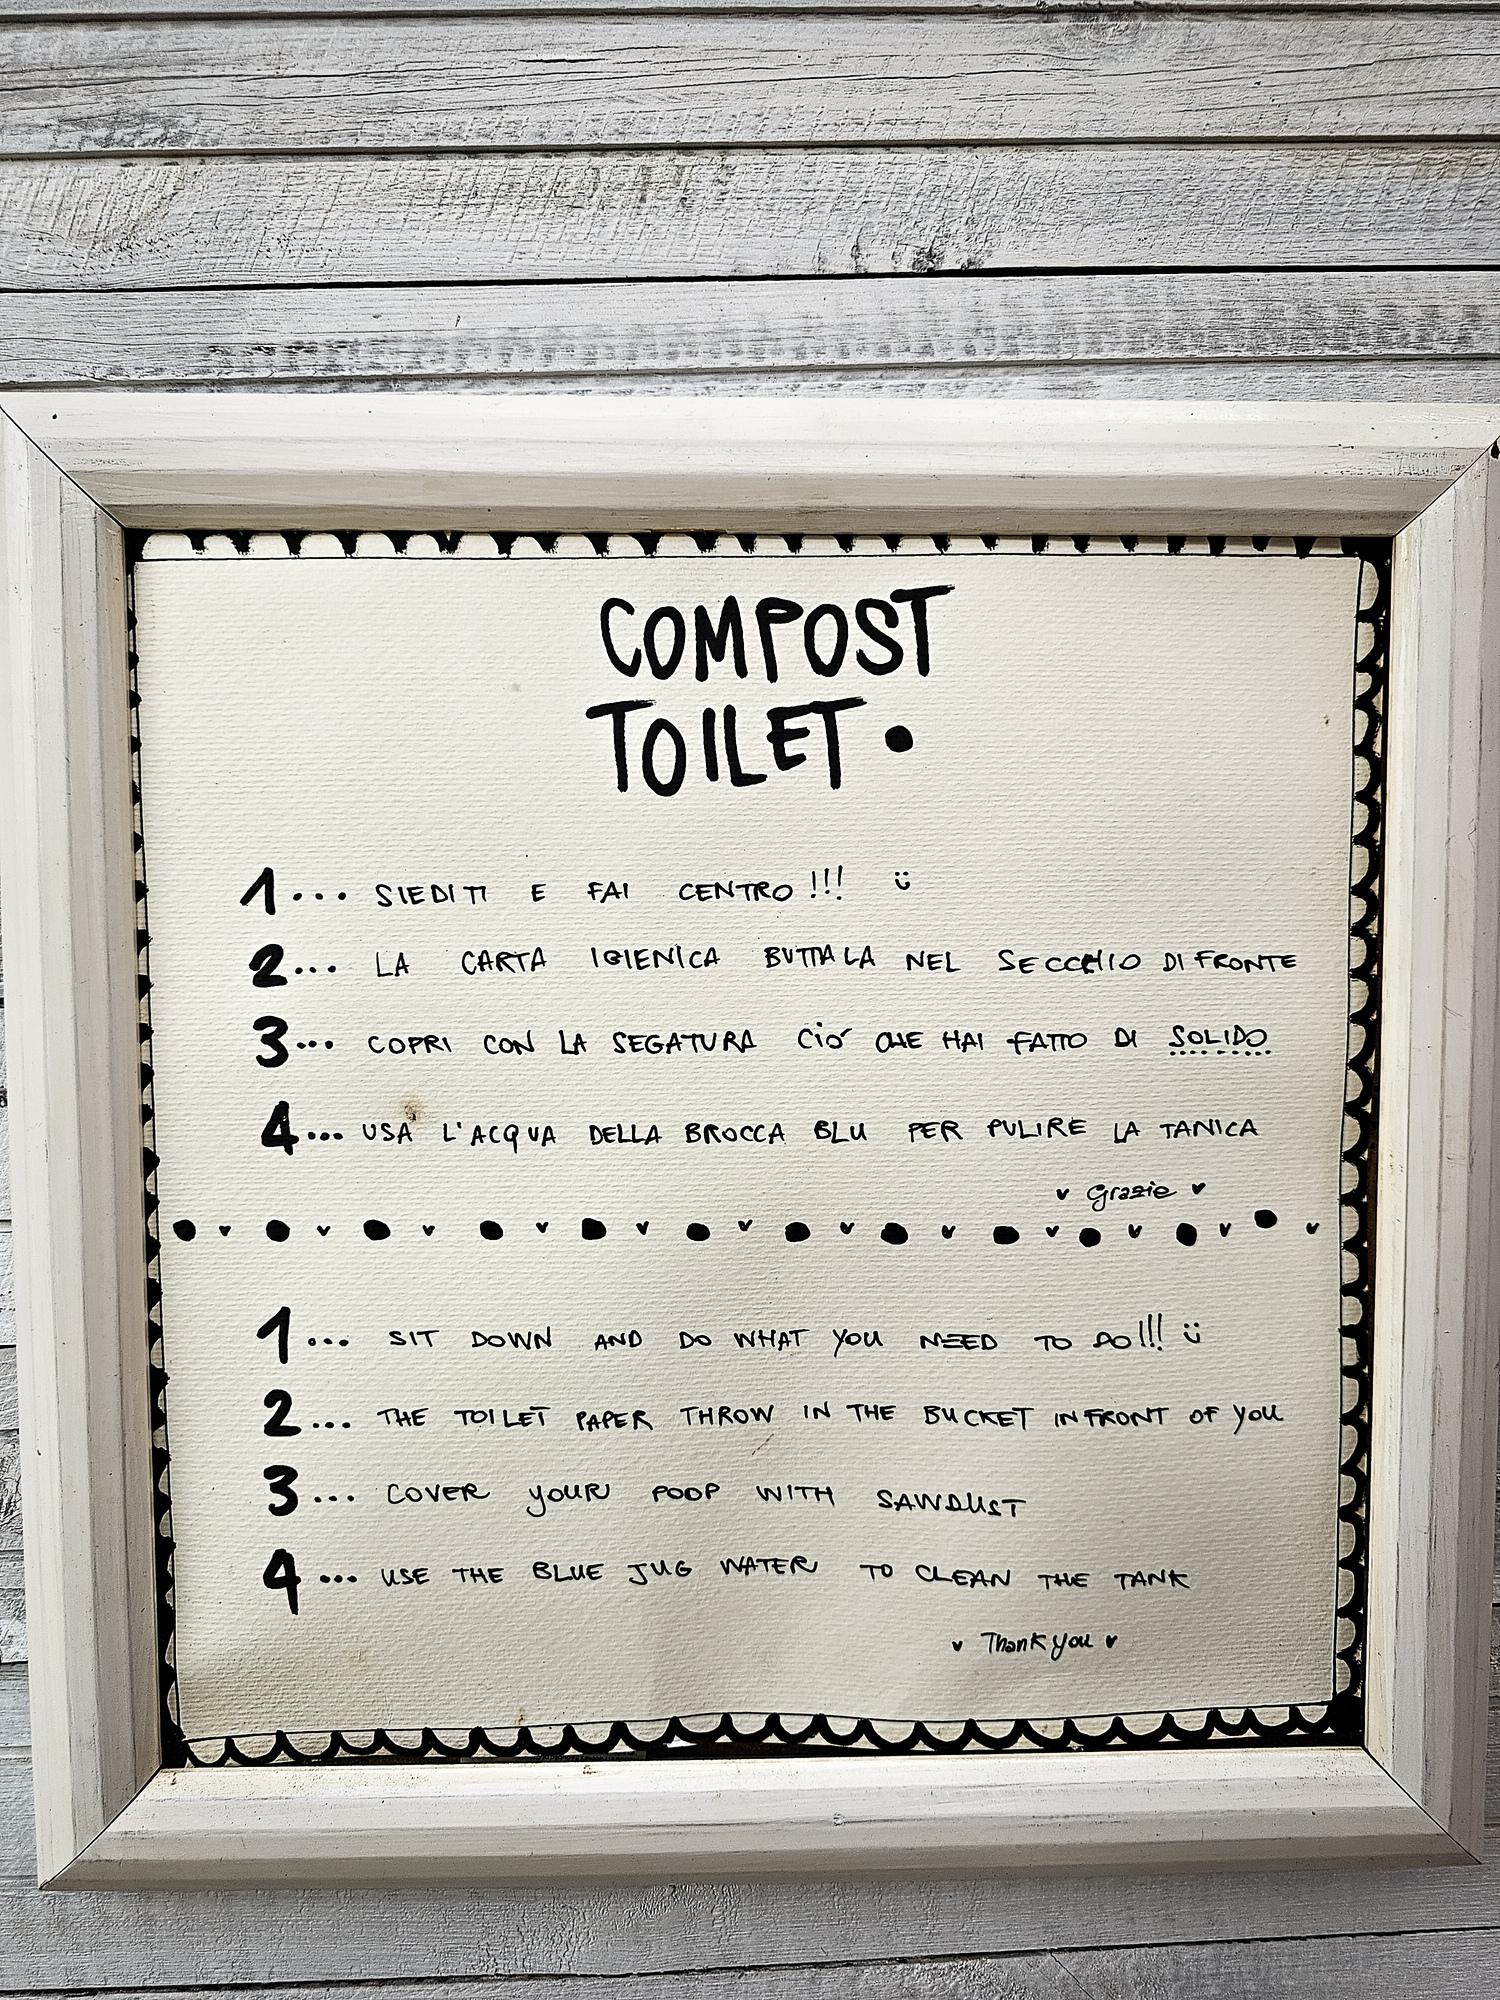 COMPOST
TOILET •
1... SIEDITI E FAI CENTRO!!! ü
2... LA CARTA IGIENICA BUTTALA NEL SECCHIO DI FRONTE
3... COPRI CON LA SEGATURA CIÓ CHE HAI FATTO DI SOLIDO
4... USA L'ACQUA DELLA BROCCA BLU PER PULIRE LA TANICA
♥ Grazie ♥
1... SIT DOWN AND DO WHAT YOU NEED TO DO!!! ü
2... THE TOILET PAPER THROW IN THE BUCKET IN FRONT OF YOU
3... COVER YOUR POOP WITH SAWDUST
4... USE THE BLUE JUG WATER TO CLEAN THE TANK
♥ Thank you ♥